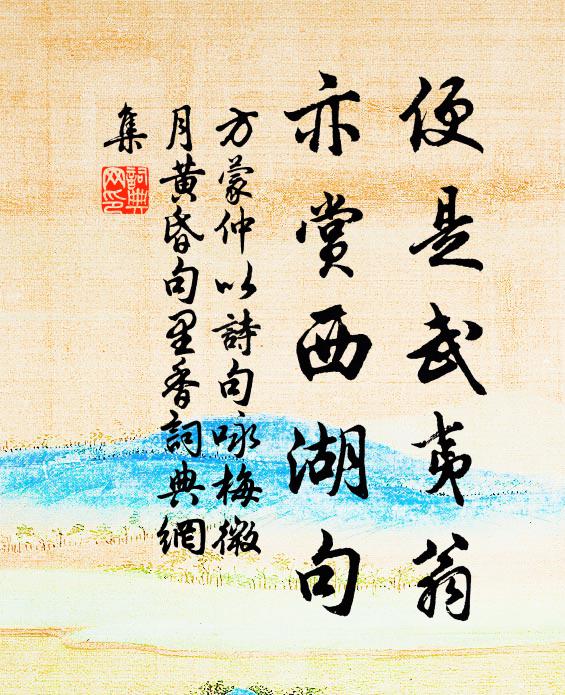 便是武夷翁
亦賞西湖句
方蒙仲以詩句咏梅微
月黃昏句里香詞典網
集
詞典网印